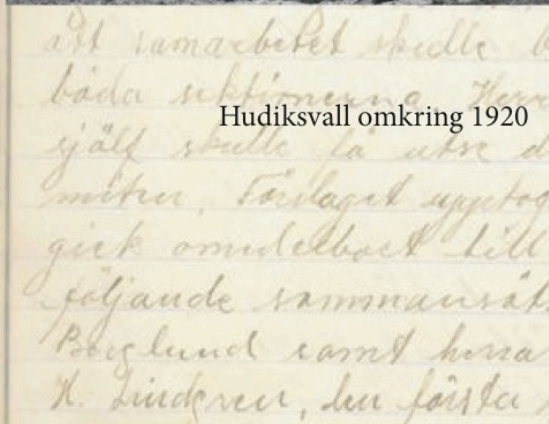 att samarbetet skulle b
båda sektionerna. Herr
Hudiksvall omkring 1920
själf skulle få utse d
Förslaget upptog
gick omedelbart till
följande sammansät
Berglund samt herra
K. Lindgren, den första